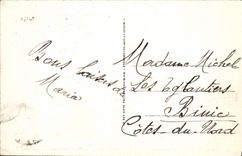 Bons baisers de
Maria
Madame Michel
Les Eglantiers
Binic
Côtes-du-Nord